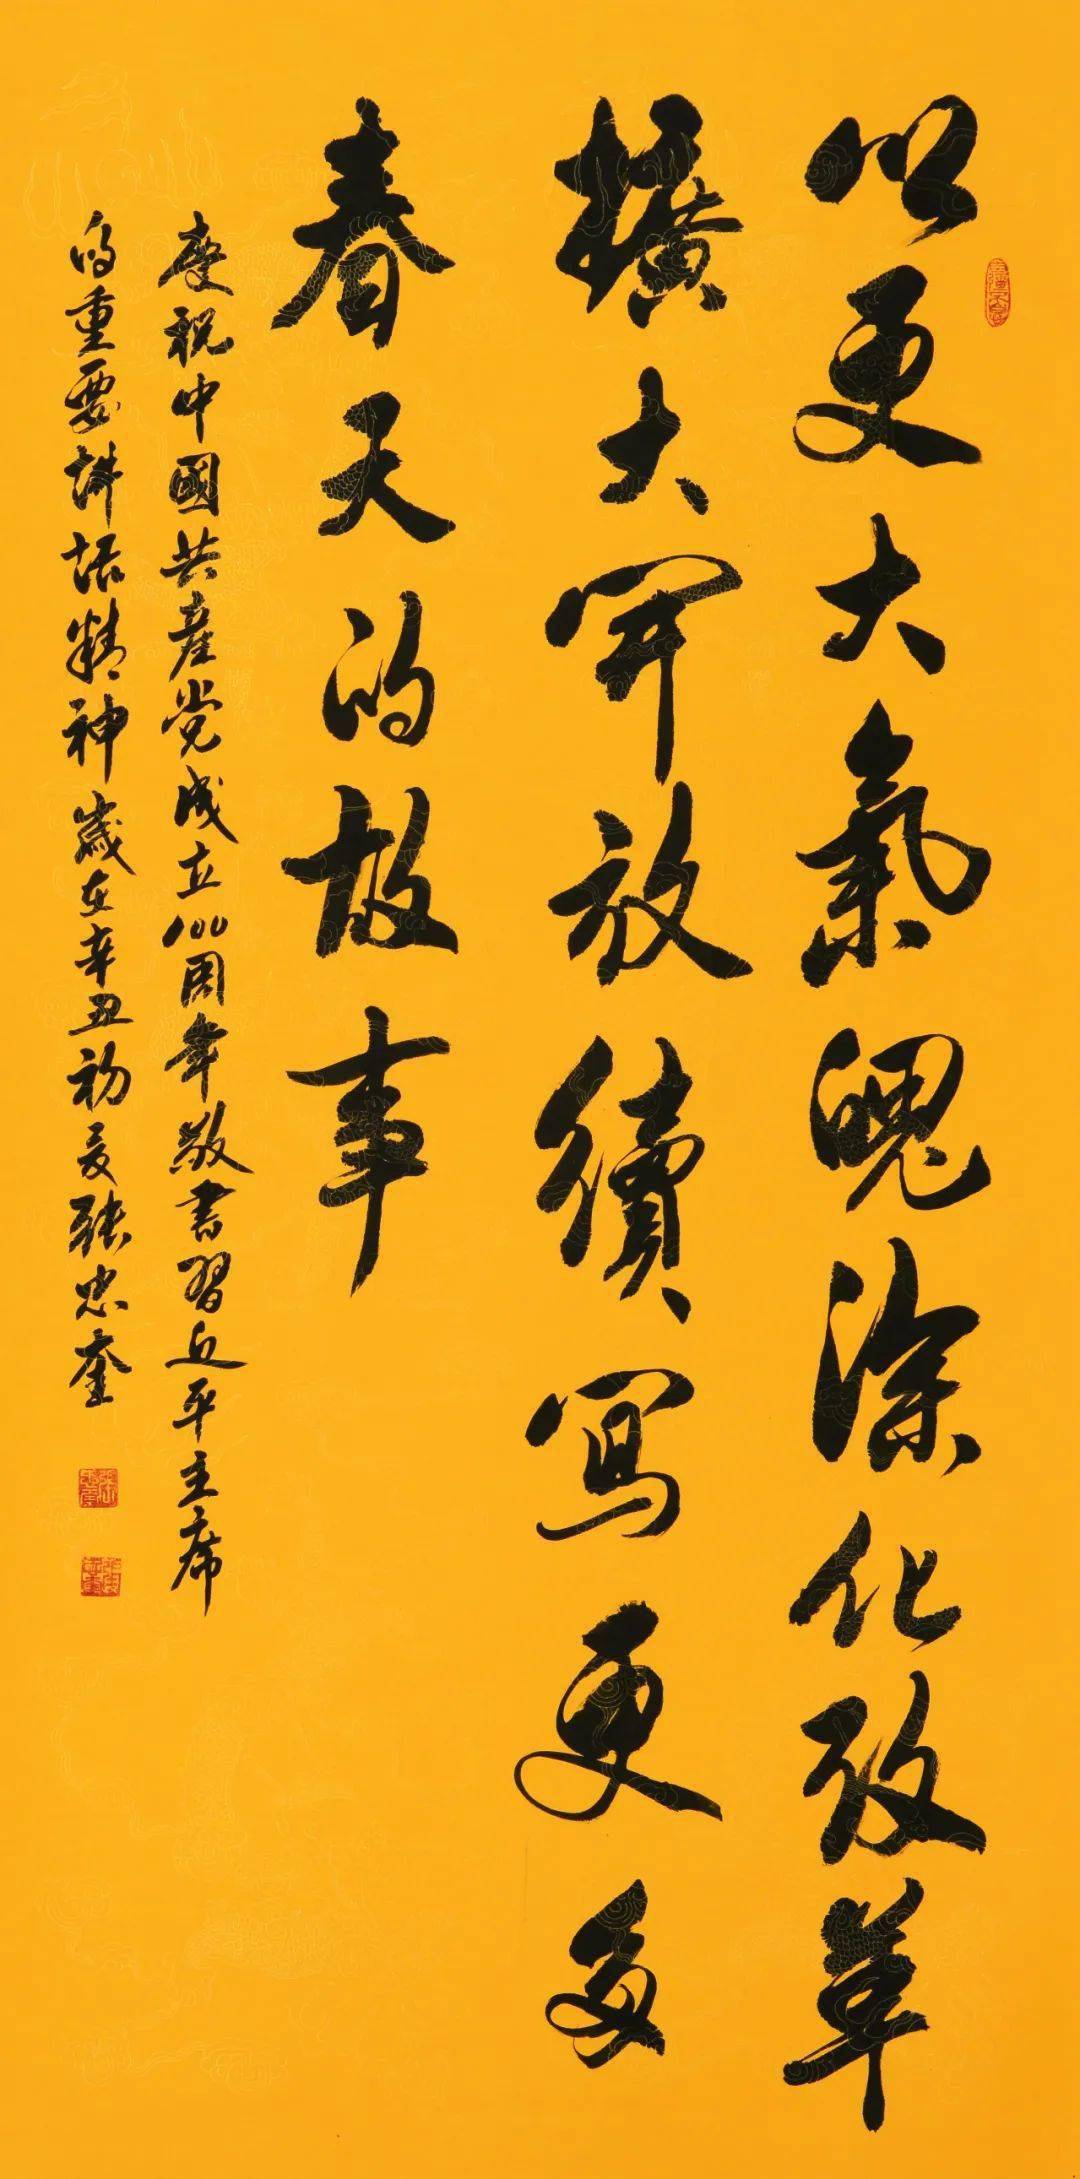 以更大氣魄深化改革
擴大開放續寫更多
春天的故事
慶祝中國共產党成立100周年敬書習近平主席
的重要講話精神歲在辛丑初夏張忠奎